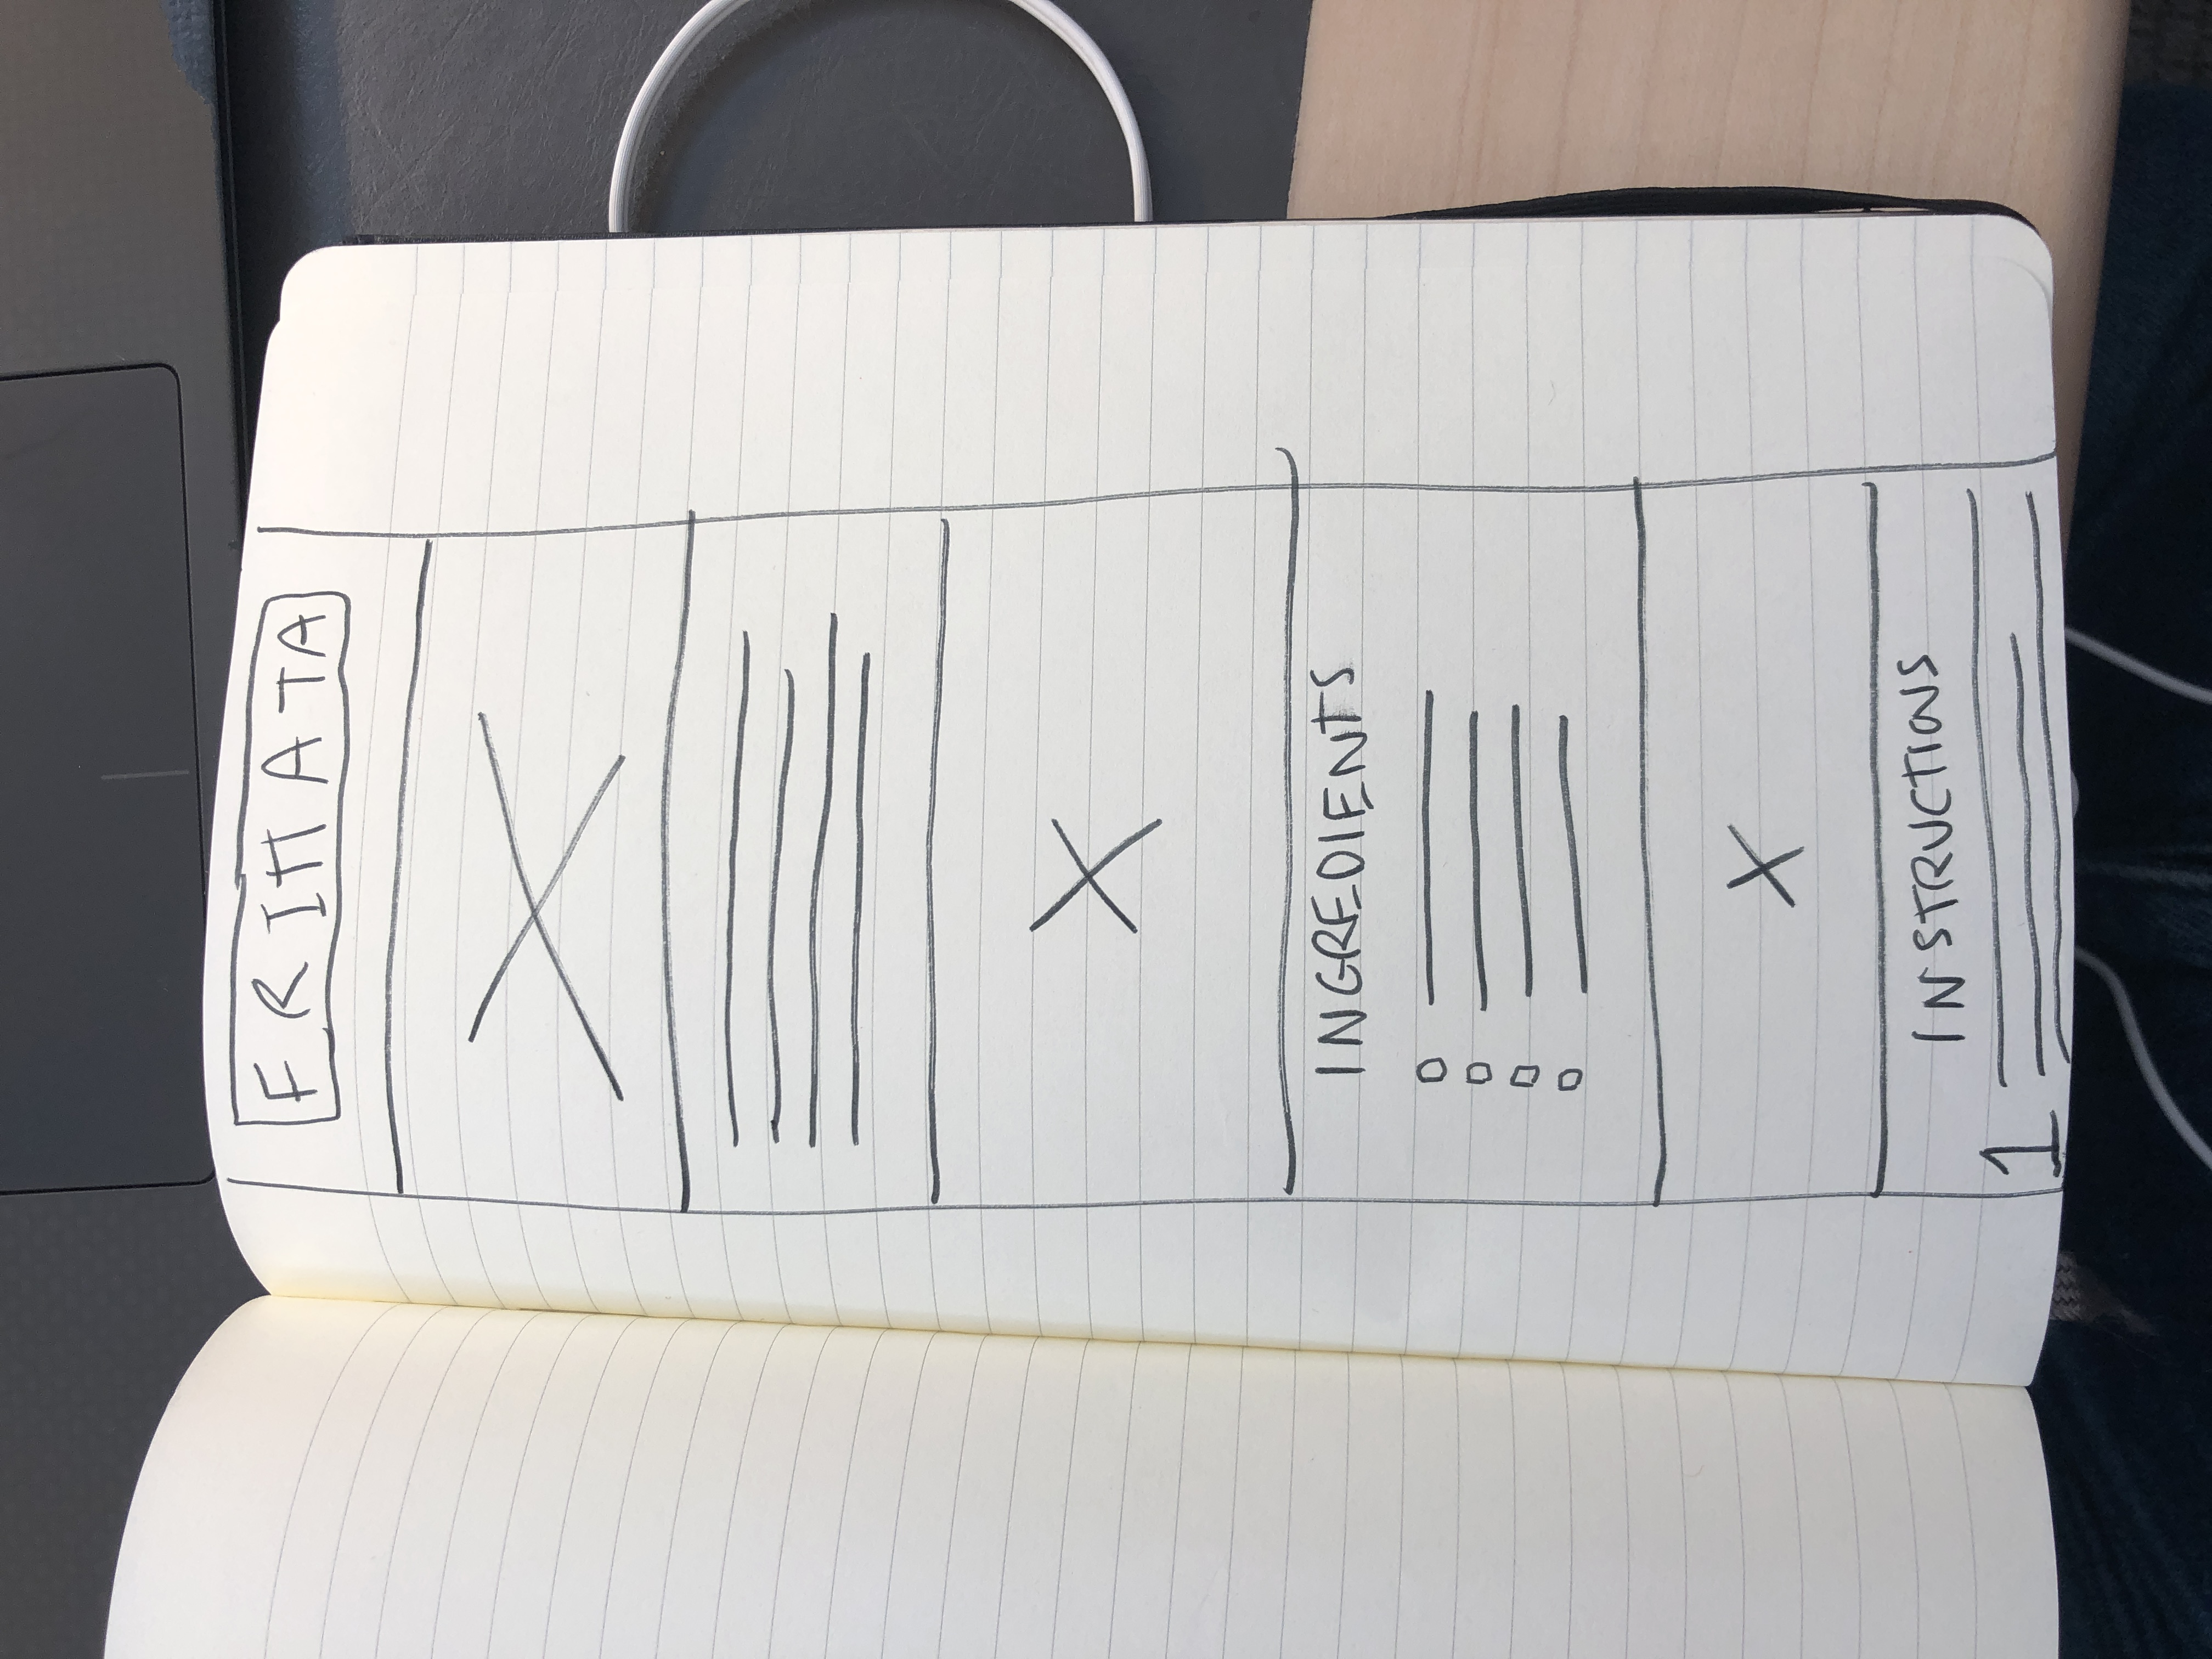 FRITTATA
INGREDIENTS
INSTRUCTIONS
1